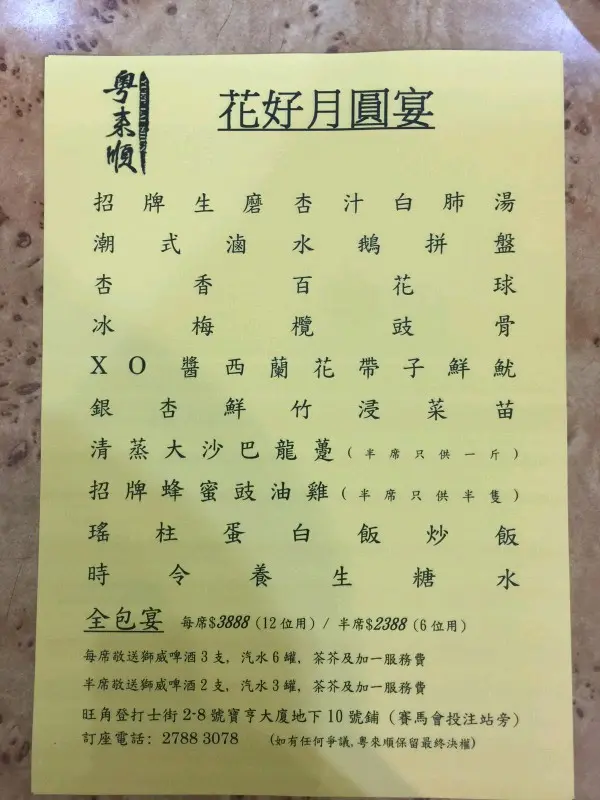 粵來順
花好月圓宴
招牌生磨杏汁白肺湯
潮式滷水鵝拼盤
杏香百花球
冰梅欖豉骨
XO醬西蘭花帶子鮮魷
銀杏鮮竹浸菜苗
清蒸大沙巴龍躉(半席只供一斤)
招牌蜂蜜豉油雞(半席只供半隻)
瑤柱蛋白飯炒飯
時令養生糖水
全包宴 每席$3888 (12位用) / 半席$2388 (6位用)
每席敬送獅威啤酒3支, 汽水6罐, 茶芥及加一服務費
半席敬送獅威啤酒2支, 汽水3罐, 茶芥及加一服務費
旺角登打士街2-8號寶亨大廈地下10號鋪 (賽馬會投注站旁)
訂座電話: 2788 3078 (如有任何爭議,粵來順保留最終決權)